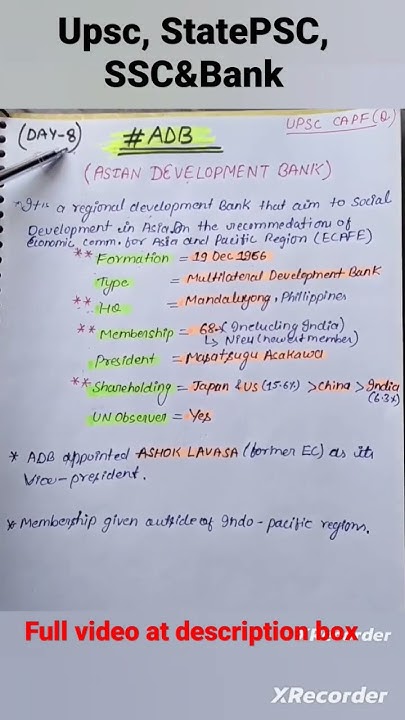 Upsc, StatePSC,
SSC&Bank
UPSC CAPF(Q)
(DAY-8) #ADB
(ASIAN DEVELOPMENT BANK)
It is a regional development Bank that aim to Social
Development in Asia on the recommedation of
Economic comm. for Asia and Pacific Region (ECAFE)
** Formation = 19 Dec 1966
Type = Multilateral Development Bank
** HQ = Mandaluyong, Phillippines
** Membership = 68 (Including India)
↳ Nieu (newest member)
President = Masatsugu Asakawa
** Shareholding = Japan & US (15.6%) > China > India
(6.3%)
UN Observer = Yes
* ADB appointed ASHOK LAVASA (former EC) as its
Vice-president.
* Membership given outside of Indo-pacific regions.
Full video at description box
XRecorder
XRecorder